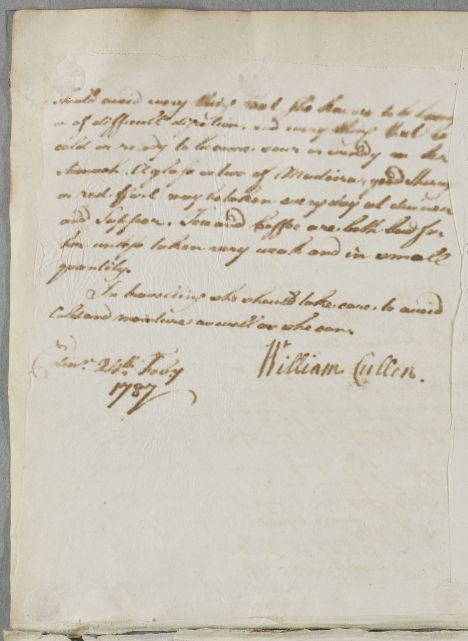 should avoid every thing that she knows to be heavy
or of difficult digestion, and every thing that is
cold or ready to become sour or windy on her
stomach. A glass or two of Madeira, good Sherry
or red Port may be taken every day at dinner
and Supper. Tea and Coffee are both bad for
her unless taken very weak and in small
quantity.
In travelling she should take care to avoid
Cold and moisture as well as she can.
24th Febry
1787
William Cullen.